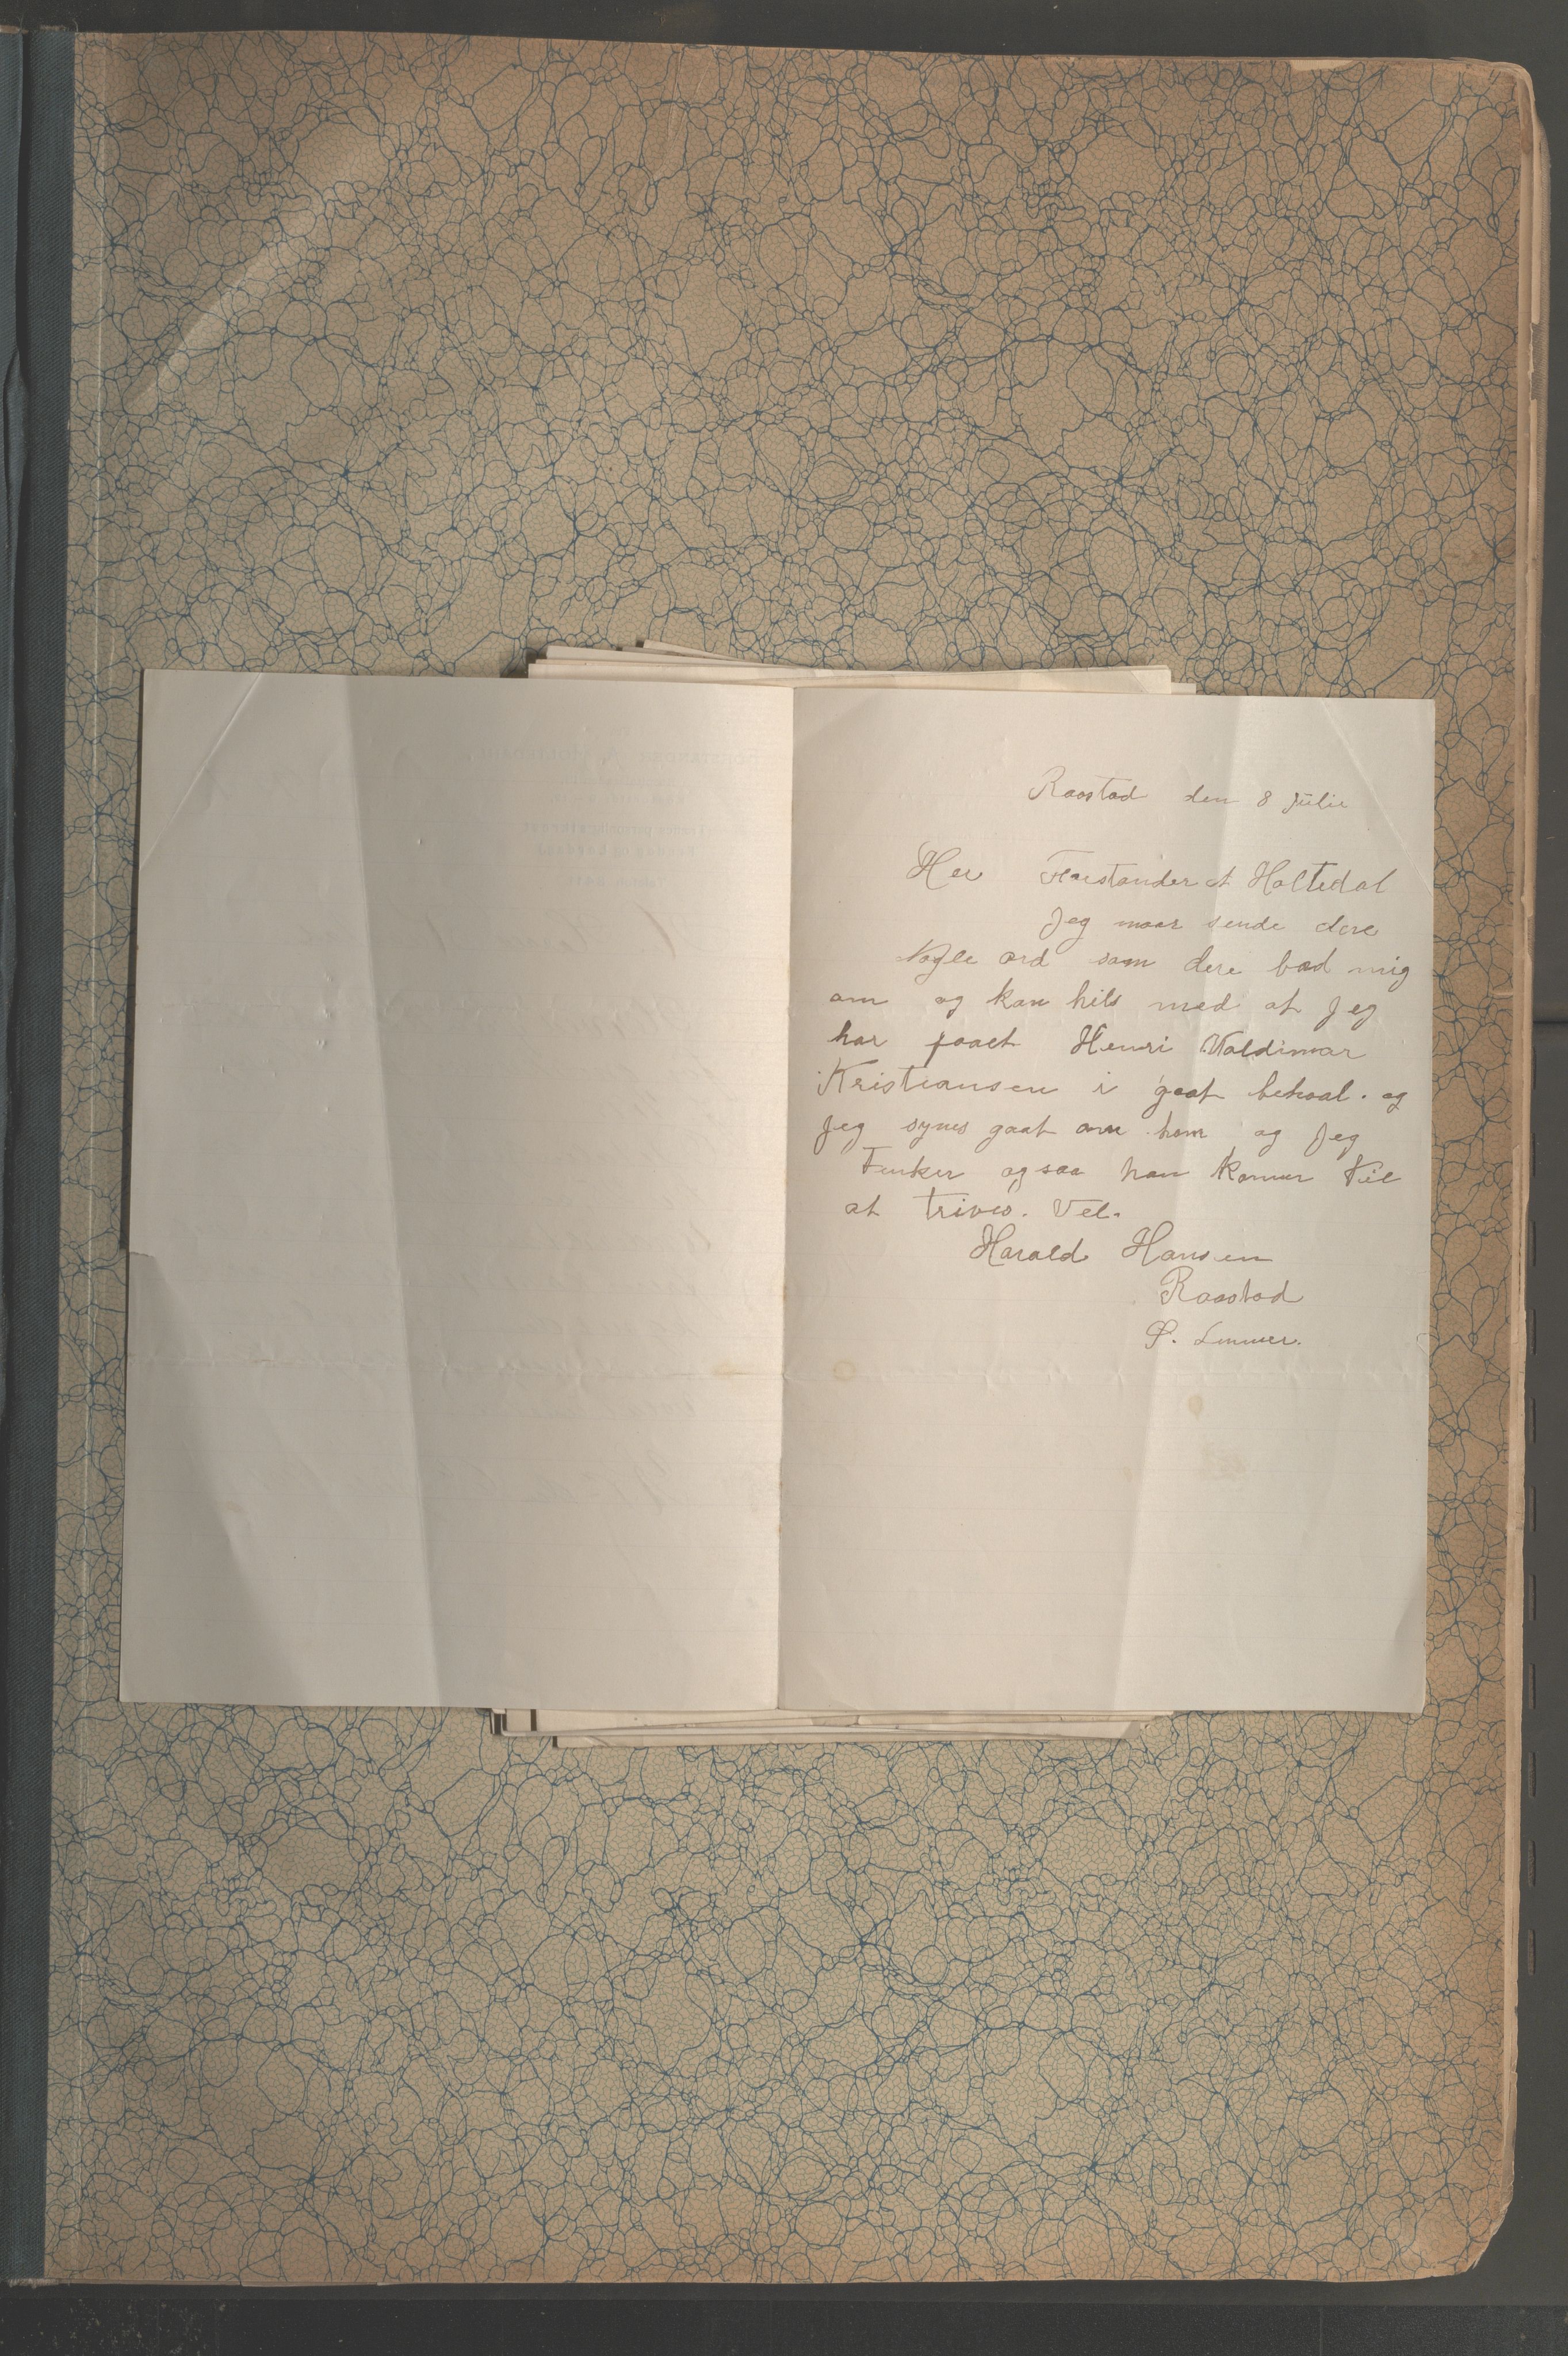 Raastad den 8 Julie
Her Forstander A Holtedal
Jeg maar sende dere
Nogle ord som dere bad mig
om og kan hils med at Jeg
har faaet Henri Valdimar
Kristiansen i gaat behaal. og
Jeg synes gaat om ham og Jeg
Tenker ogsaa han komer til
at trives. Vel.
Harald Hansen
Raastad